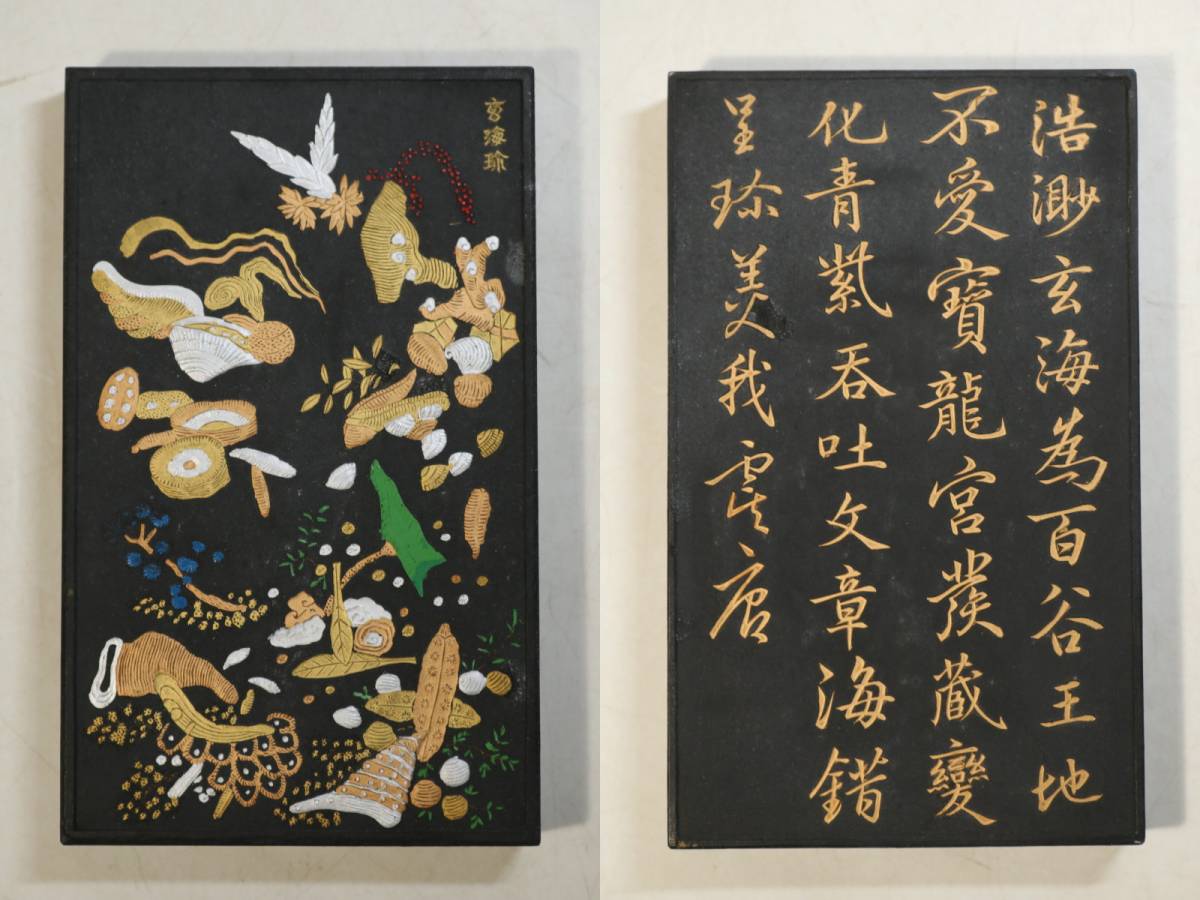 玄海珎
浩渺玄海為百谷王地
不愛寶龍宮發藏變
化青紫吞吐文章海錯
呈珎美我虞唐